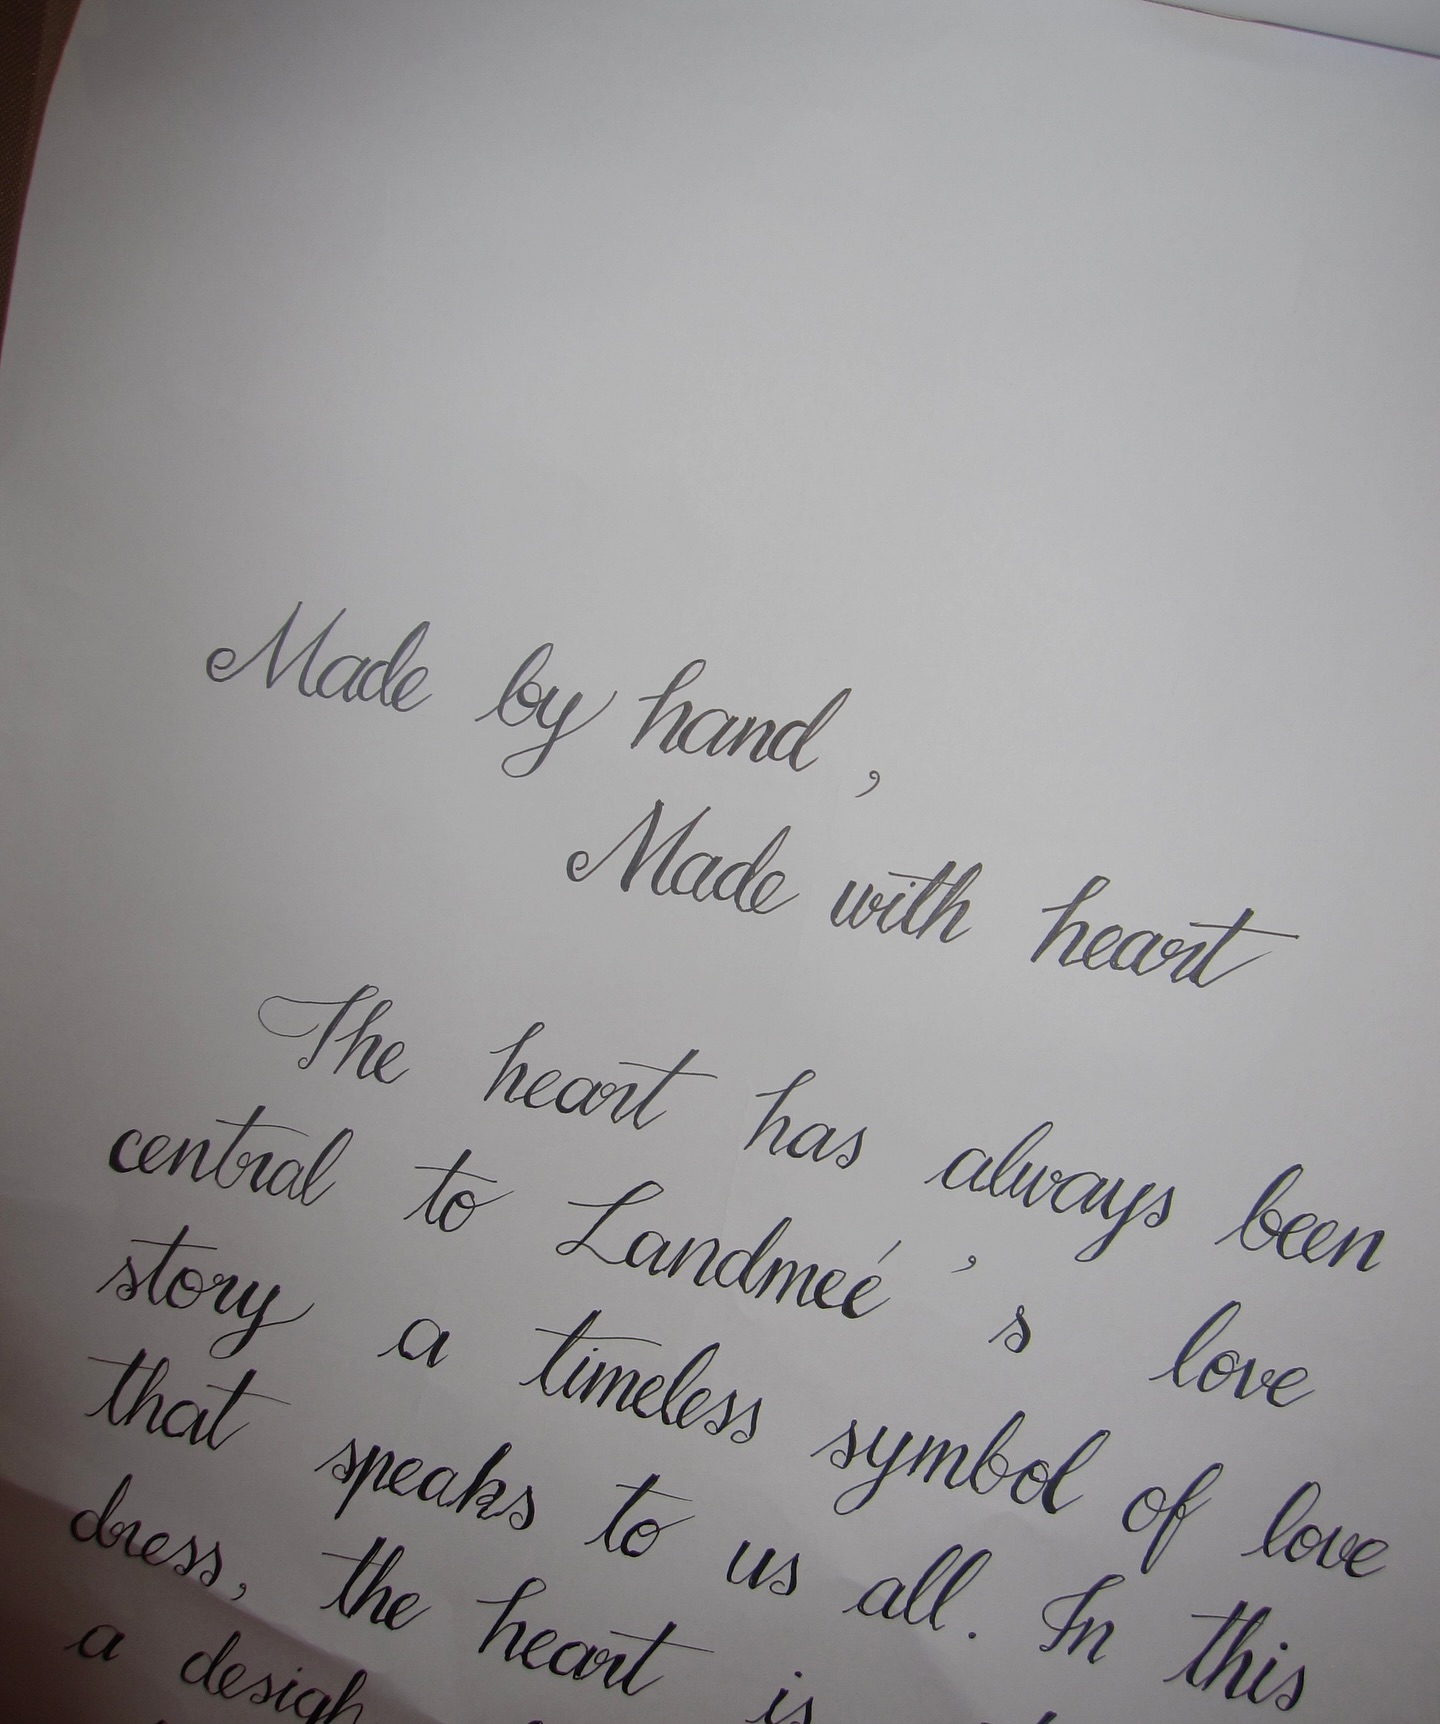 Made by hand,
Made with heart
The heart has always been
central to Landmeé's love
story a timeless symbol of love
that speaks to us all. In this
dress, the heart is
a design